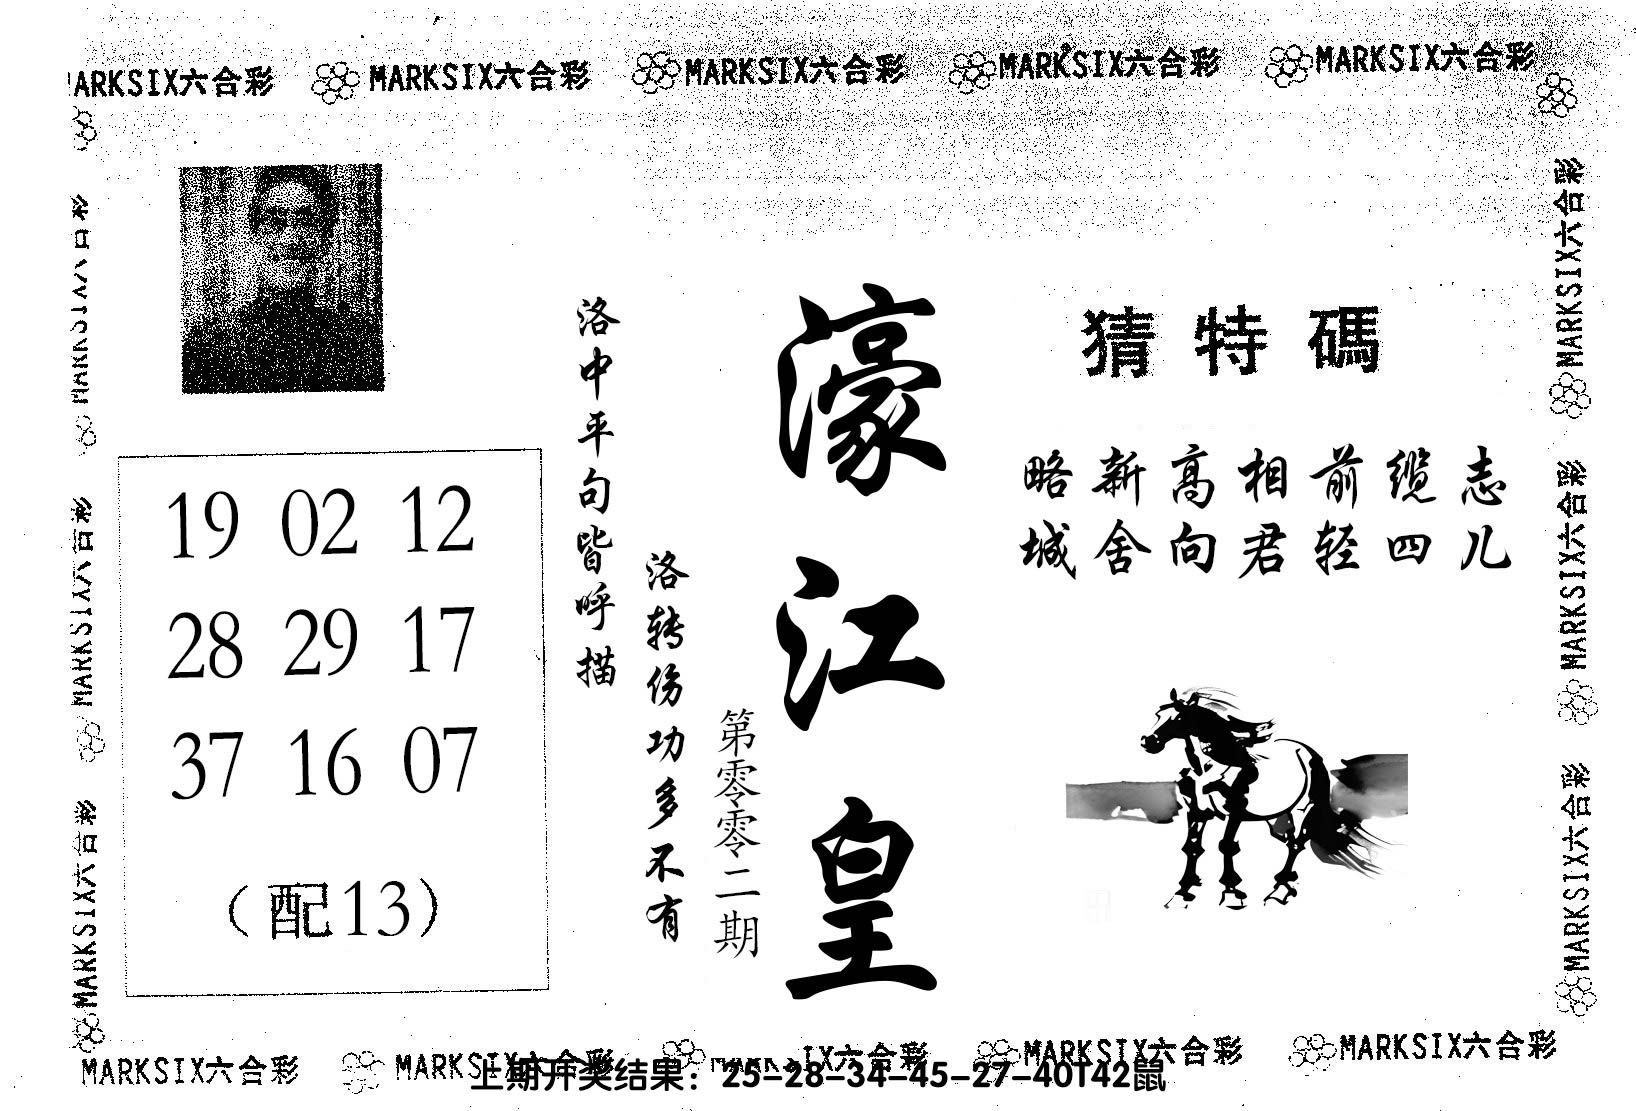 MARKSIX六合彩 MARKSIX六合彩 MARKSIX六合彩 MARKSIX六合彩
MARKSIX六合彩
MARKSIX六合彩
MARKSIX六合彩
猜特碼
略新高相前缆志
城舍向君轻四儿
濠江皇
第零零二期
洛中平句皆呼描
洛转伤功多不有
19 02 12
28 29 17
37 16 07
(配13)
MARKSIX六合彩
MARKSIX六合彩
MARKSIX六合彩
MARKSIX六合彩 MARKSIX六合彩 MARKSIX六合彩 MARKSIX六合彩
上期开奖结果：25-28-34-45-27-40T42鼠